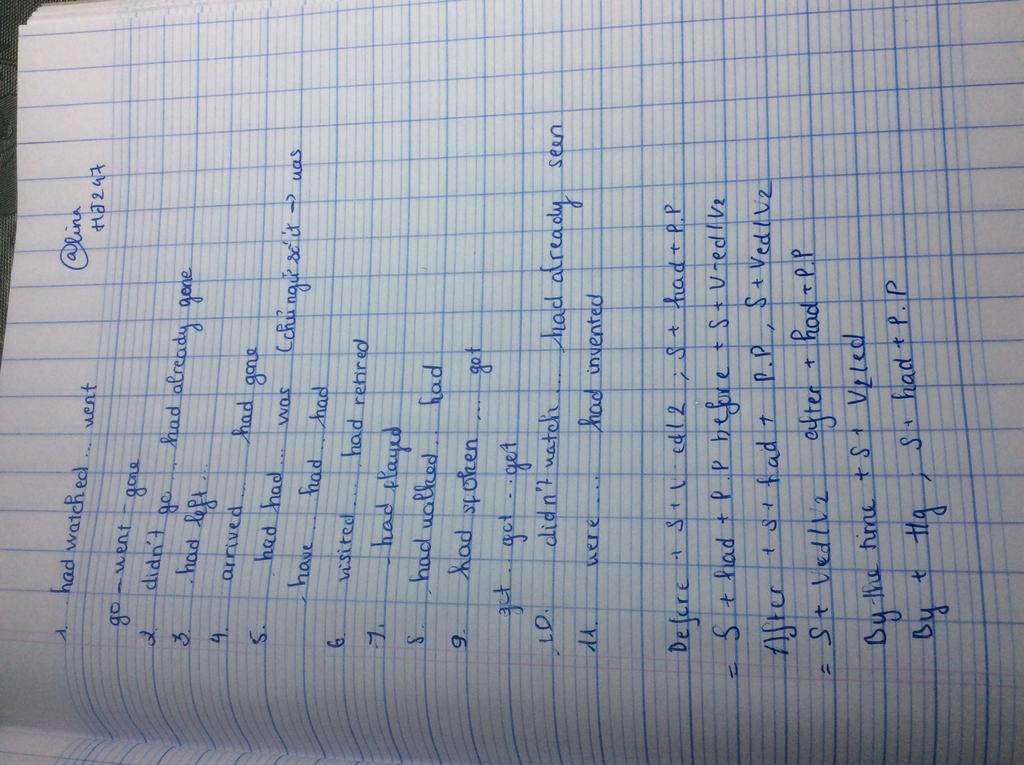 @lina
HJ247
1. had watched.... went
go - went - gone
2. didn't go... had already gone
3. had left...
4. arrived.... had gone
5. had had.... was (chủ ngữ số ít → was
have - had - had
6. visited..... had retired
7. had played
8. had walked.... had
9. had spoken .... got
get.. got.. get
10. didn't watch..... had already seen
11. were..... had invented
Before + S + V-ed/2 ; S + had + P.P
= S + had + P.P before + S + V-ed/V2
After + S + had + P.P, S + Ved/V2
= S + Ved/V2 after + had + P.P
By the time + S + V2/ed
By + tg ; S + had + P.P